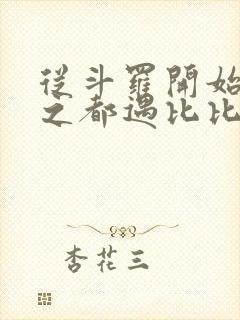 從斗羅開始
之都遇比比
杏花三